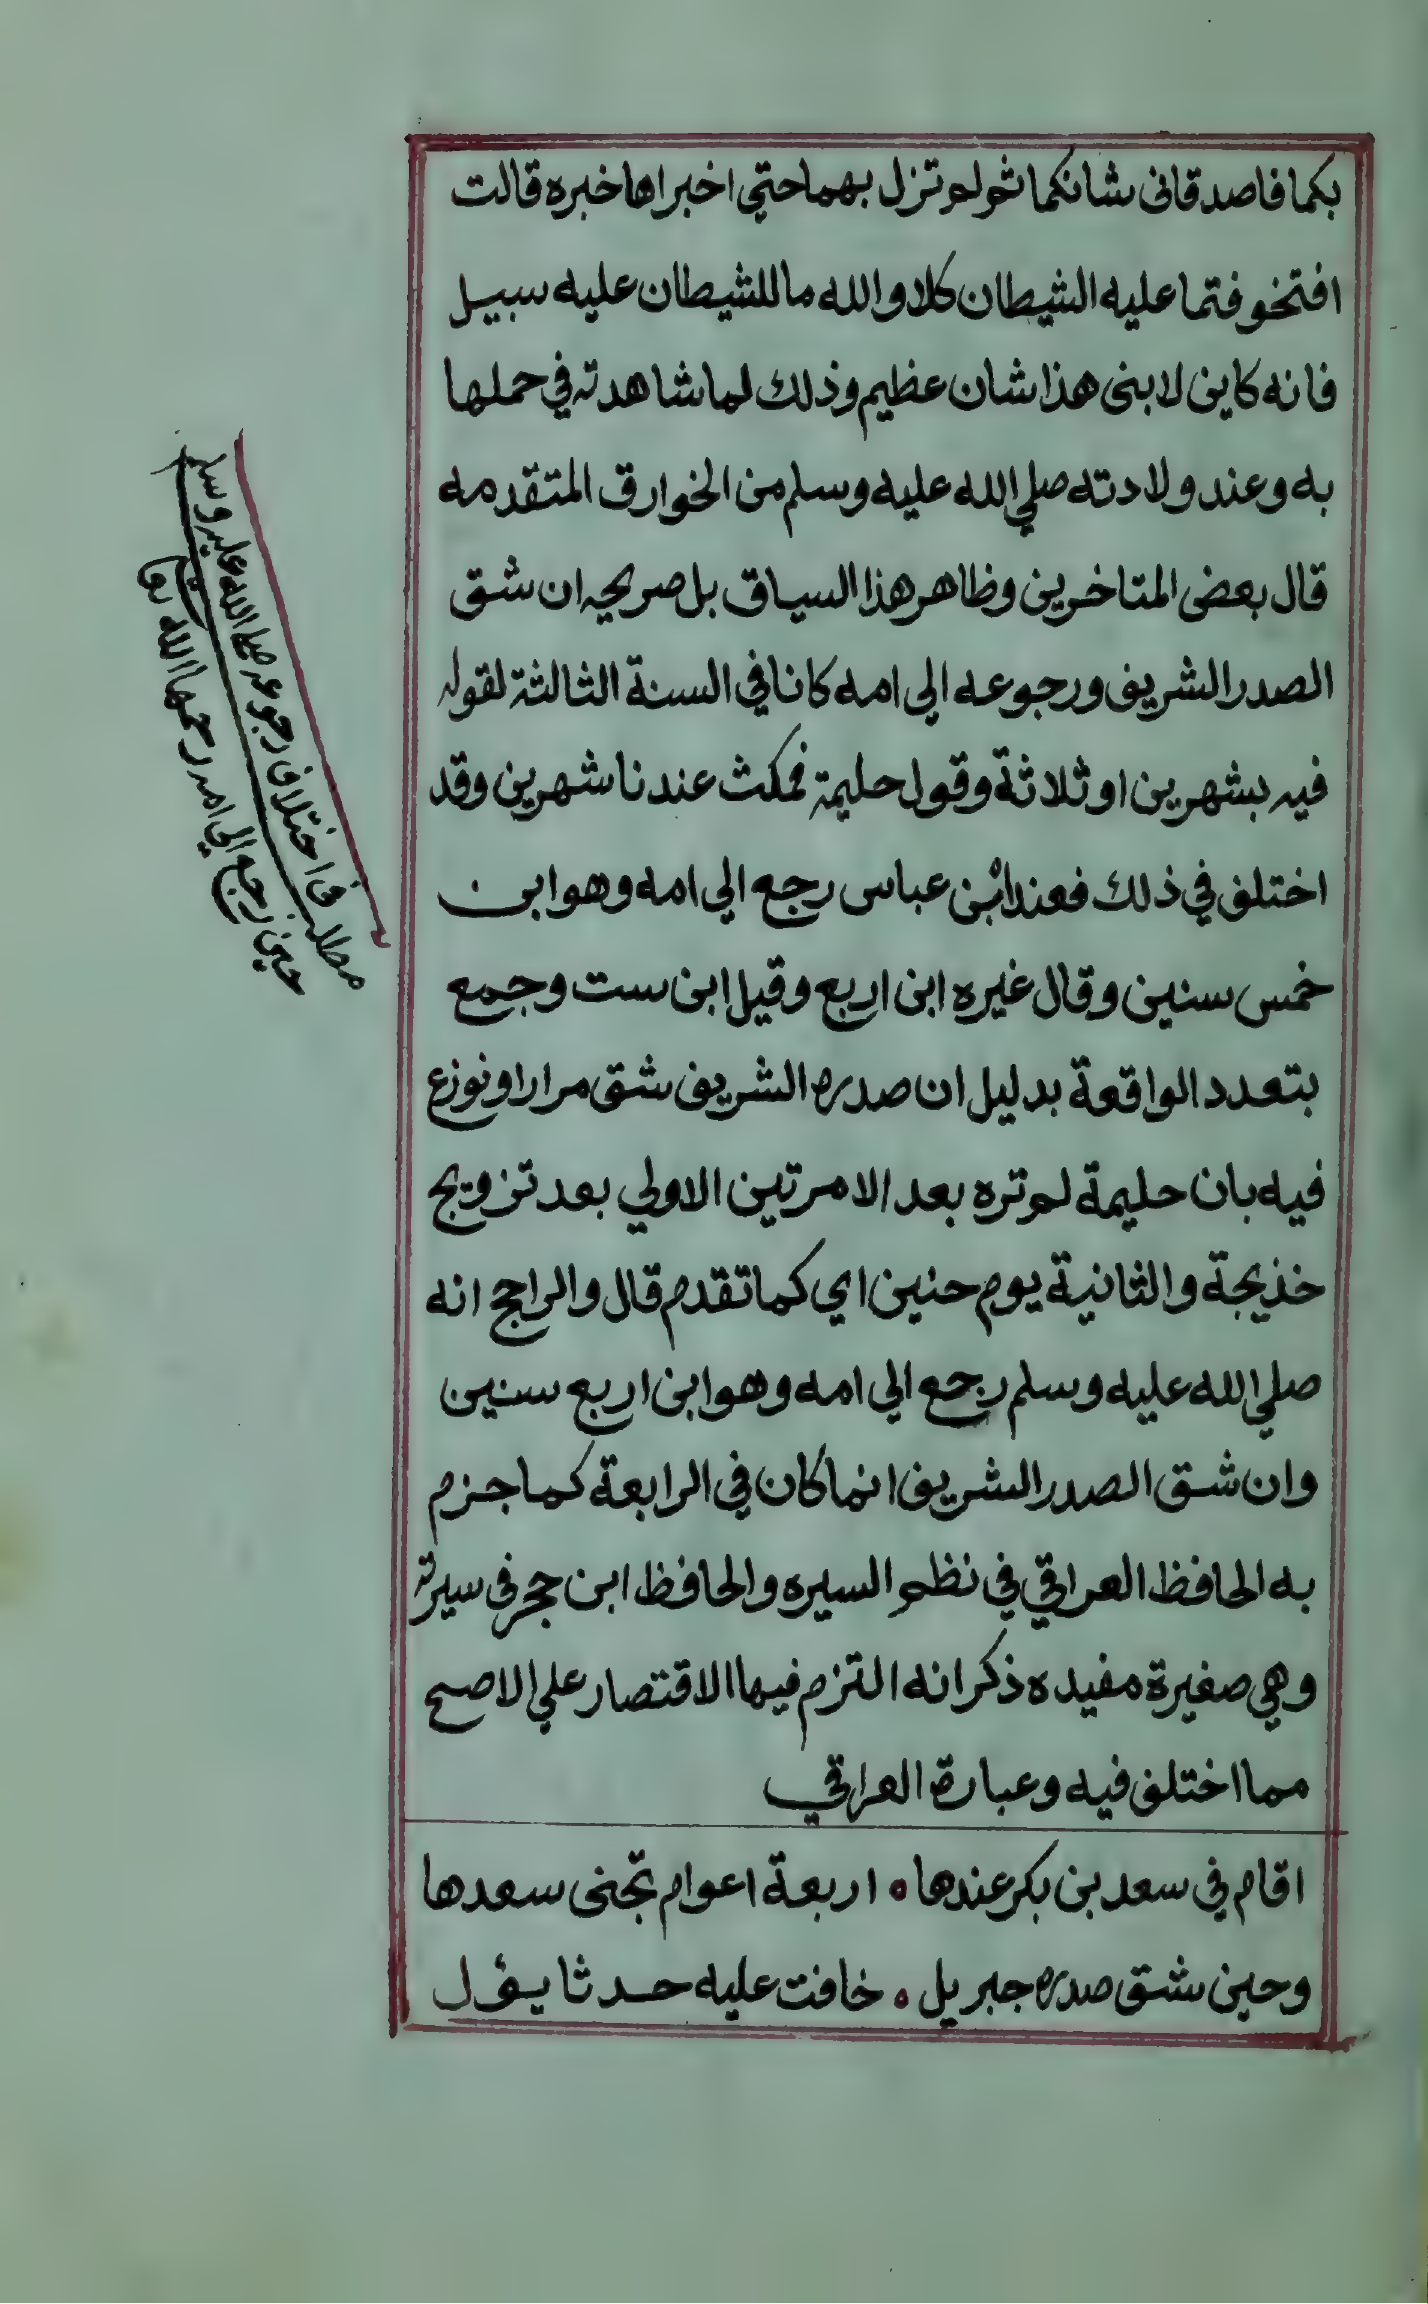 بكما فاصدقاني شانكما ثم لم تزل بهما حتي اخبراها خبره قالت
افتخوفتما عليه الشيطان كلا والله ما للشيطان عليه سبيل
فانه كاين لابني هذا شان عظيم وذلك لما شاهدته في حملها
به وعند ولادته صلي الله عليه وسلم من الخوارق المتقدمه
قال بعض المتاخرين وظاهر هذا السياق بل صريحه ان شق
الصدر الشريف ورجوعه الي امه كانا في السنة الثالثة لقوله
فيه بشهرين او ثلاثة وقول حليمة فمكث عندنا شهرين وقد
اختلف في ذلك فعند ابن عباس رجع الي امه وهو ابن
خمس سنين وقال غيره ابن اربع وقيل ابن ست وجمع
بتعدد الواقعة بدليل ان صدره الشريف شق مرارا ونوزع
فيه بان حليمة لم تره بعد الا مرتين الاولي بعد تزويج
خذيجة والثانية يوم حنين اي كما تقدم قال والراجح انه
صلي الله عليه وسلم رجع الي امه وهو ابن اربع سنين
وان شق الصدر الشريف انما كان في الرابعة كما جزم
به الحافظ العراقي في نظم السيره والحافظ ابن حجر في سيرته
وهي صغيرة مفيده ذكر انه التزم فيها الاقتصار علي الاصح
مما اختلف فيه وعبارة العراقي
اقام في سعد بن بكر عندها ه اربعة اعوام تجني سعدها
وحين شق صدره جبريل ه خافت عليه حدثا يؤل
مطلب في اختلاف رجوعه صلي الله عليه وسلم
حين رجع الي امه رحمها الله تعا